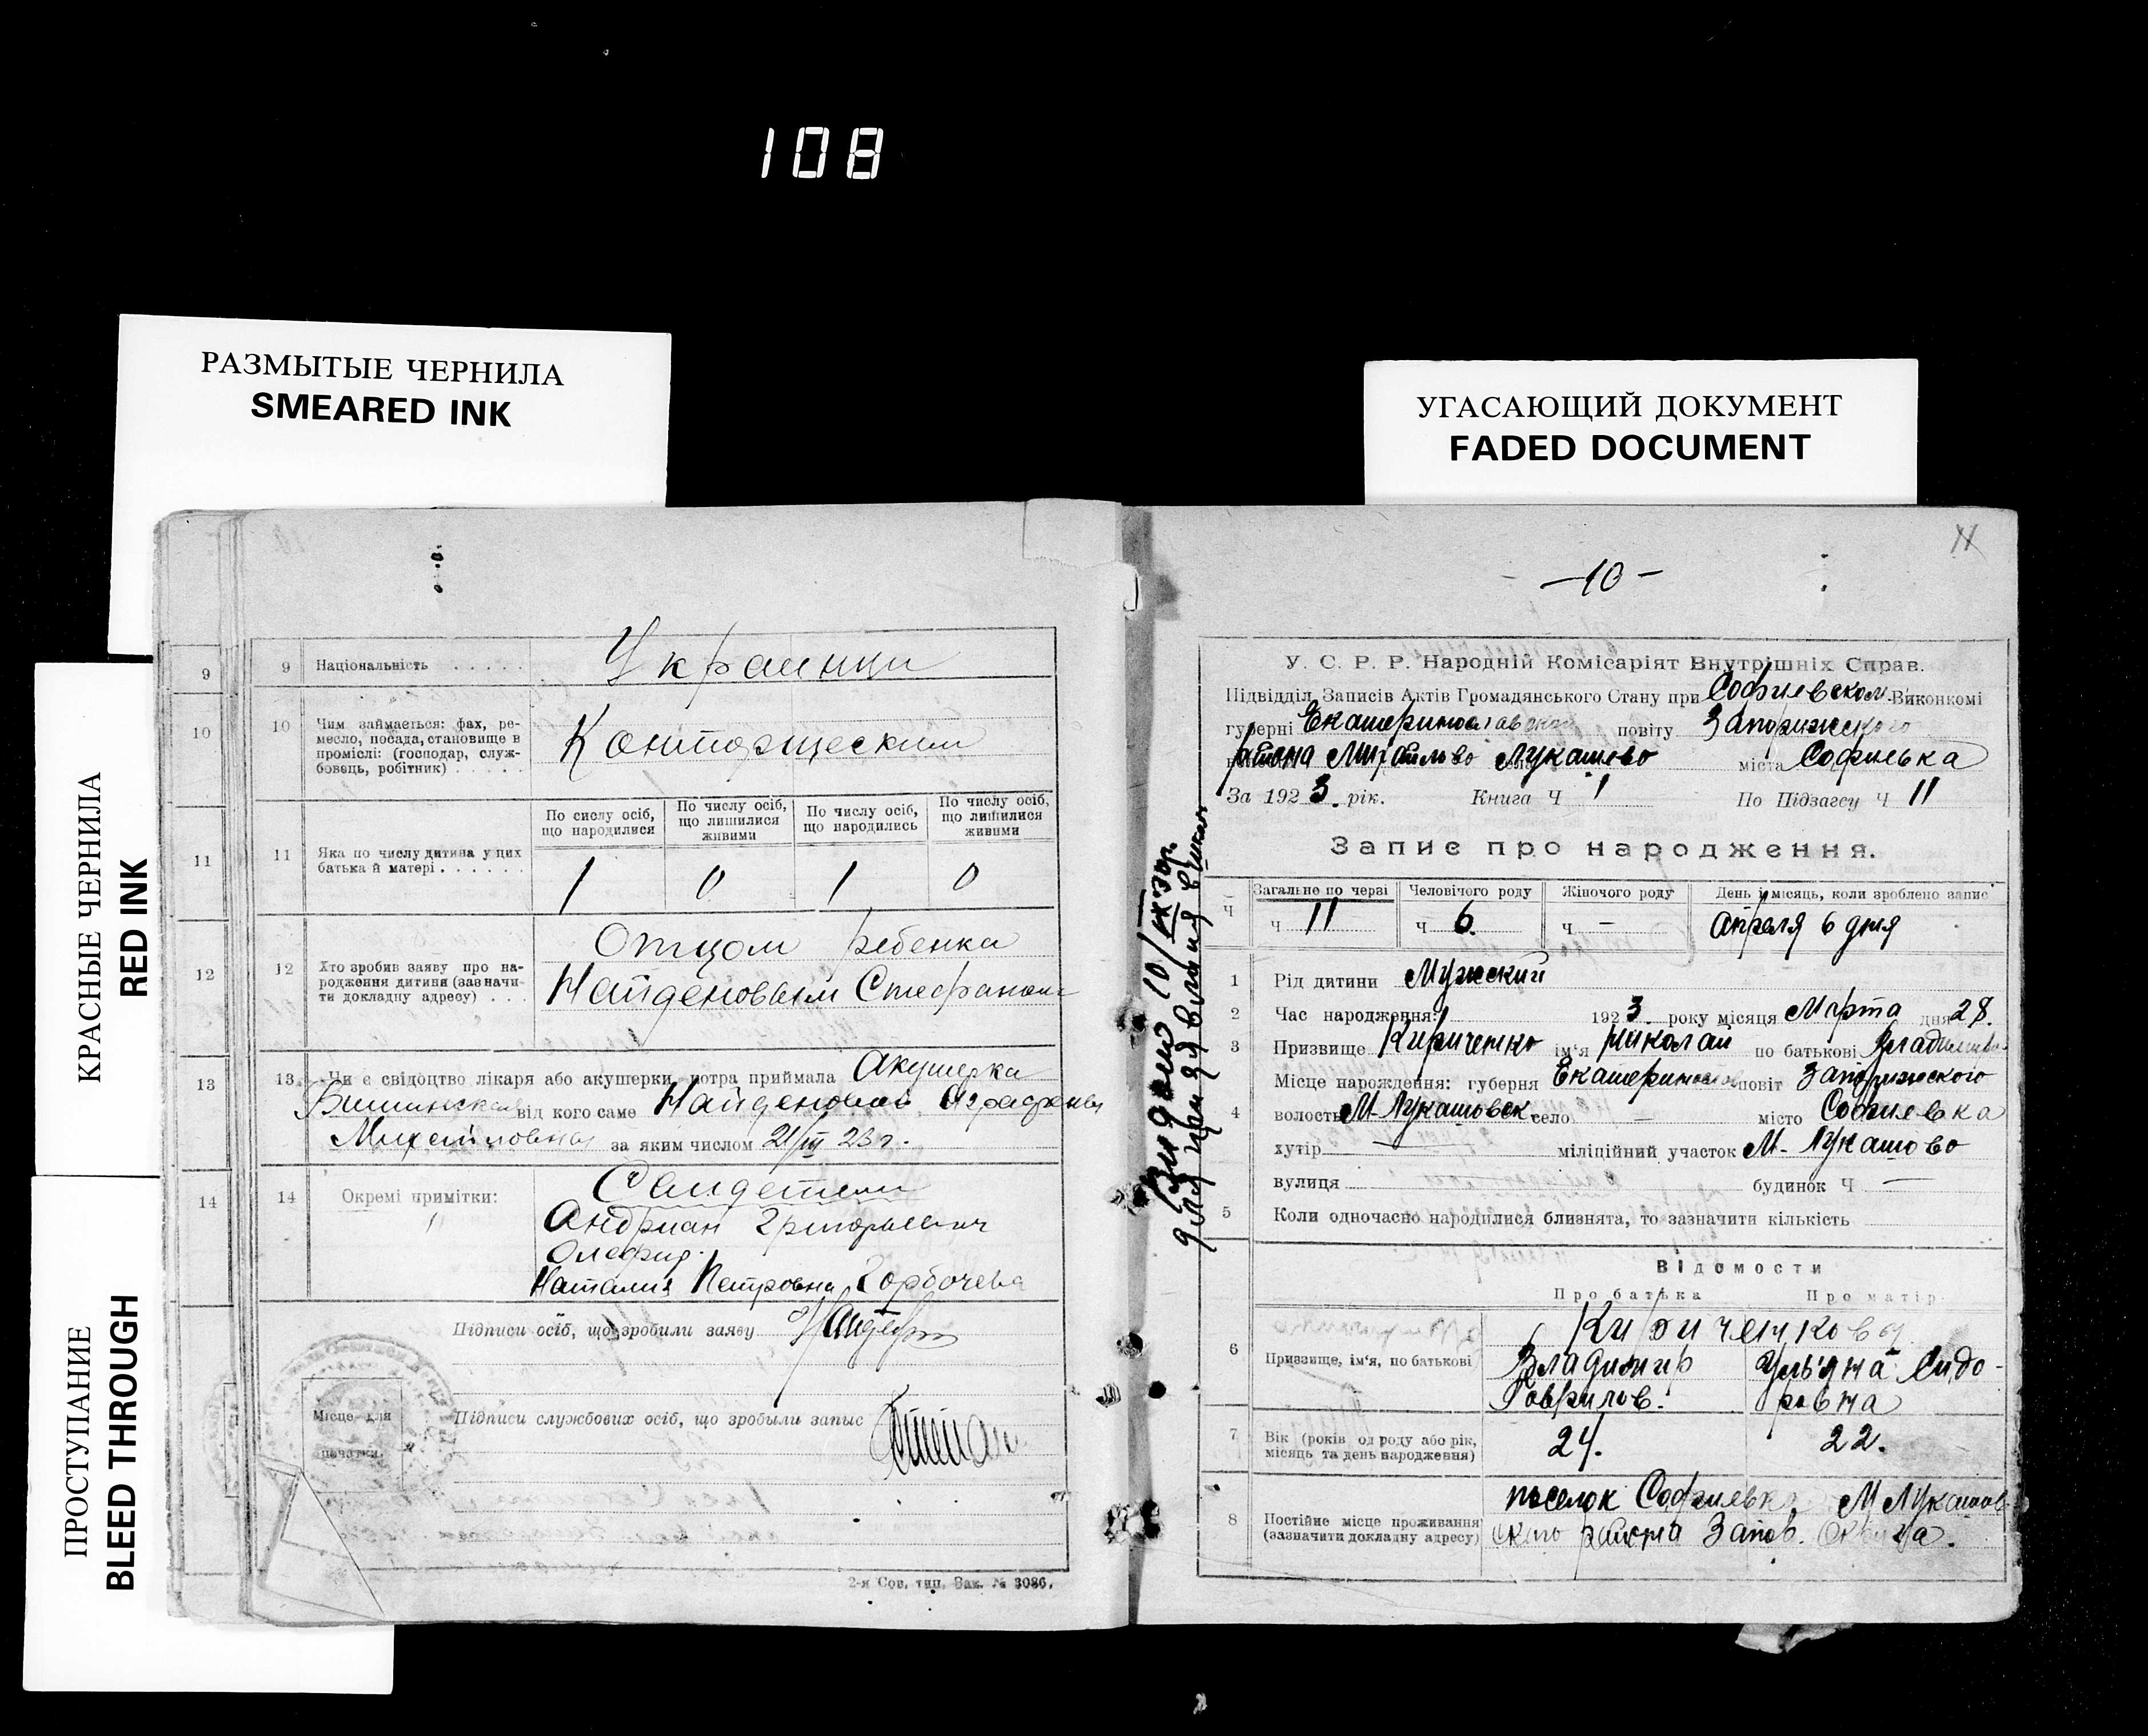 108
РАЗМЫТЫЕ ЧЕРНИЛА
SMEARED INK
УГАСАЮЩИЙ ДОКУМЕНТ
FADED DOCUMENT
КРАСНЫЕ ЧЕРНИЛА
RED INK
ПРОСТУПАНИЕ
BLEED THROUGH
9
10
11
12
13
14
9 Національність . . . . . Украинци
10 Чим займається: фах, ре-
месло, посада, становище в
промислі: (господар, служ-
бовець, робітник) . . . . .
11 Яка по числу дитина у цих
батька й матері . . . . . .
По сислу осіб, що народилися
По числу осіб, що лишилися живими
По числу осіб, що народились
По числу осіб, що лишилися живими
1 0 1 0
12 Хто зробив заяву про на-
родження дитини (зазначи-
ти докладну адресу) . . .
Отцом ребенка
Найденовым Стефаном
13 Чи є свідоцтво лікаря або акушерки, котра приймала Акушерка
від кого саме Найденовой Аграфены
Михайловны за яким числом 21/III 23 г.
14 Окремі примітки:
Андриан Григорьевич
Наталия Петровна Горбочева
Підписи осіб, що зробили заяву
Підписи службових осіб, що зробыли запыс
Місце для
печатки.
2-я Сов. тип. Зак. № 3086.
11
—10—
У. С. Р. Р. Народній Комісаріят Внутрішніх Справ.
Підвідділ Записів Актів Громадянського Стану при Софиевском Виконкомі
губерні Екатеринославской повіту Запорижского
района Михайлово Лукашево міста Софиевка
За 1923. рік. Книга Ч 1 По Підзагсу Ч 11
Запис про народження.
Ч
Загальне по черві Человічого роду Жіночого роду День і місяць, коли зроблено запис
ч 11 ч 6. ч — Апреля 6 дня
1 Рід дитини Мужский
2 Час народження: 1923. року місяця Марта дня 28.
3 Призвище Кириченко ім'я Николай по батькові
Місце нарождення: губерня повіт Запорижского
4 волость М-Лукашовск. село — місто Софиевка
хутір — міліційний участок М-Лукашово
вулиця будинок Ч —
5 Коли одночасно народилися близнята, то зазначити кількість
Відомости
Про батька Про матір
6 Призвище, ім'я, по батькові
Кириченковы
Владимир Ульяна Сидо-
Гаврилов. ровна
7 Вік (років од роду або рік,
місяць та день народження)
24. 22.
8 Постійне місце проживання
(зазначити докладну адресу)
поселок Софиевка М Лукашов
ского района Запов. Округа.